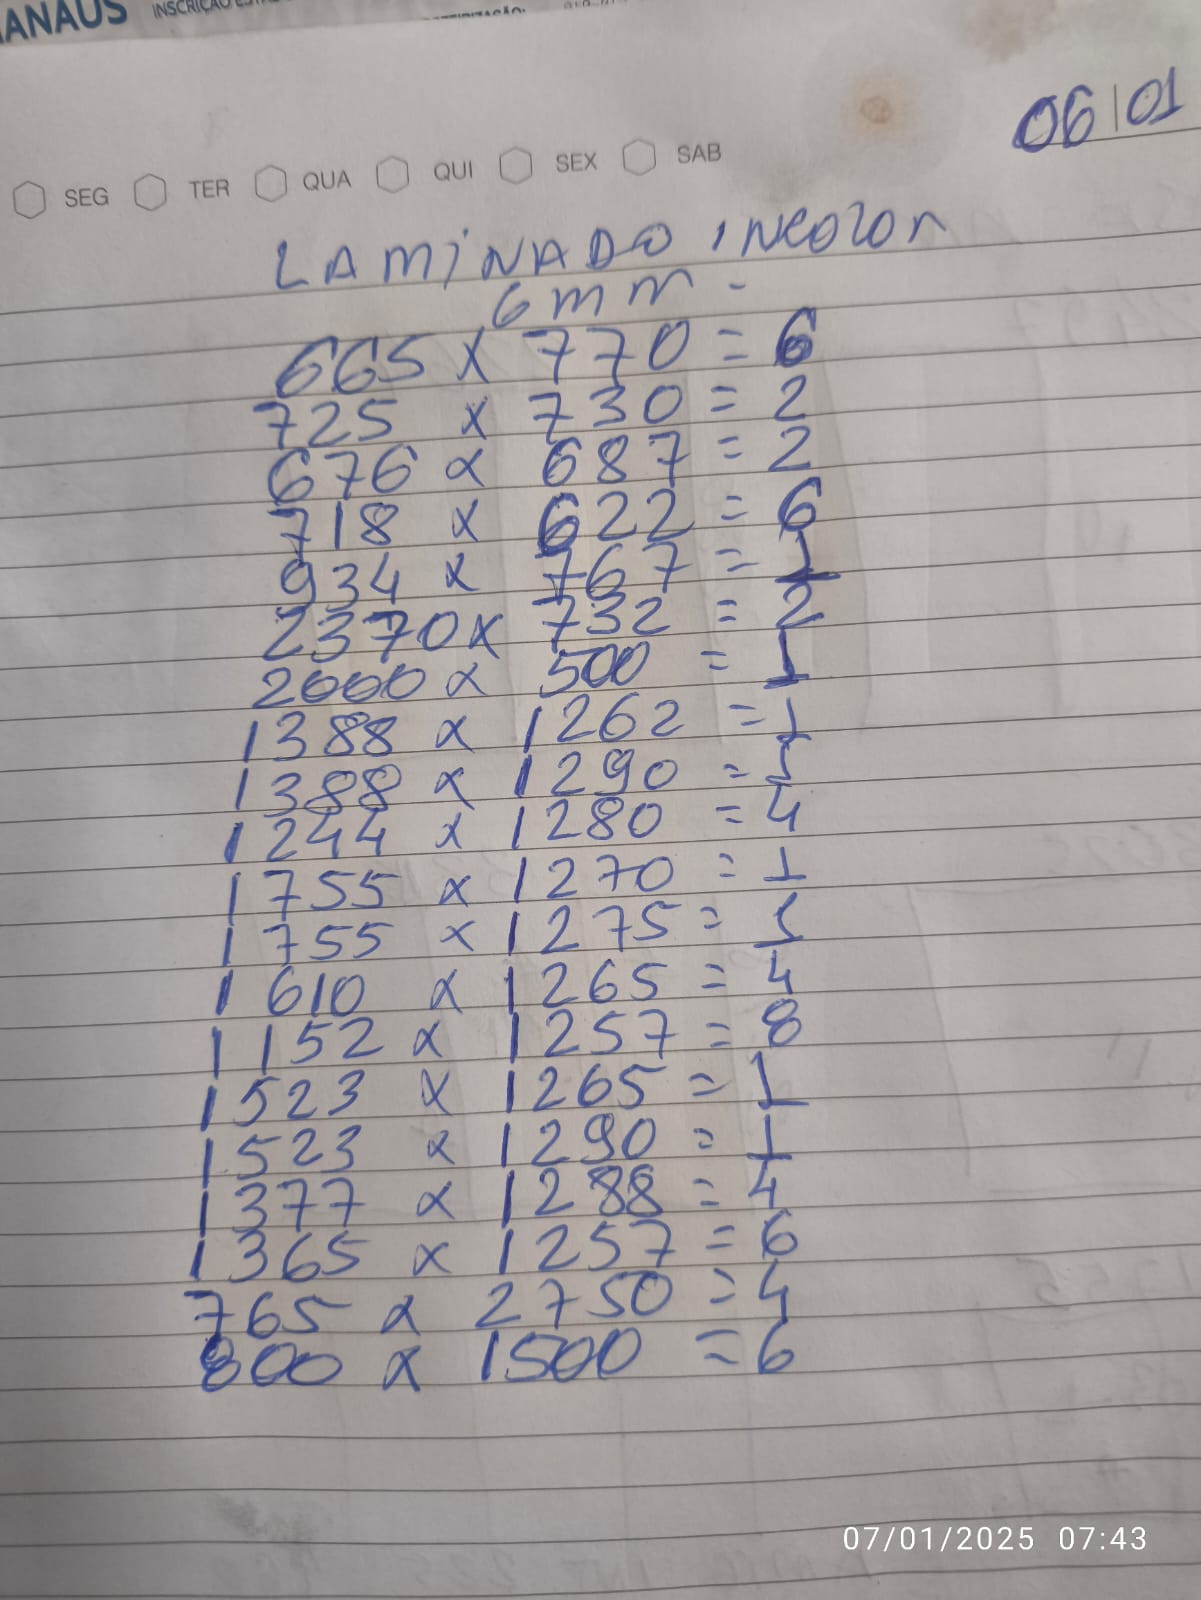 MANAUS INSCRIÇÃO
06/01
SEG TER QUA QUI SEX SAB
LAMINADO INCOLOR
6mm -
665 x 770 = 6
725 x 730 = 2
676 x 687 = 2
718 x 622 = 6
934 x 767 = 1
2370 x 732 = 2
2000 x 500 = 1
1388 x 1262 = 1
1388 x 1290 =
1244 x 1280 = 4
1755 x 1270 = 1
1755 x 1275 =
1610 x 1265 = 4
1152 x 1257 = 8
1523 x 1265 = 1
1523 x 1290 = 1
1377 x 1288 = 4
1365 x 1257 = 6
765 x 2750 = 4
800 x 1500 = 6
07/01/2025 07:43